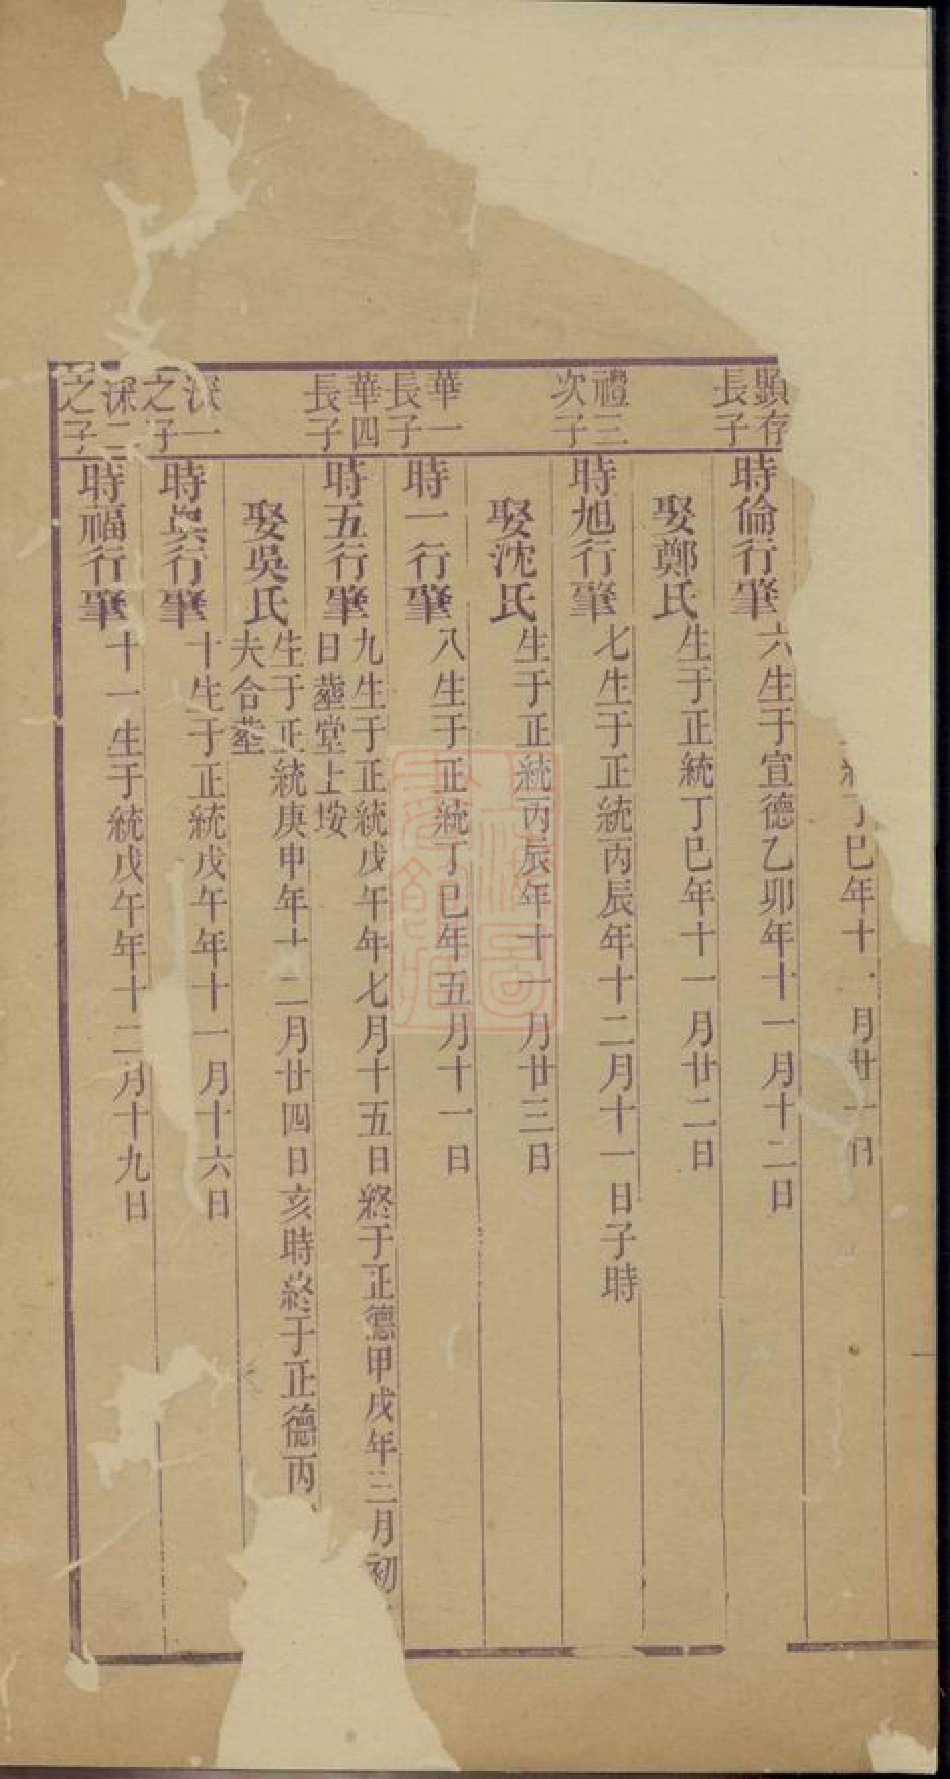 丁巳年十月廿一日
顯存長子
時倫行肇六生于宣德乙卯年十一月十二日
娶鄭氏生于正統丁巳年十一月廿二日
禮三次子
時旭行肇七生于正統丙辰年十二月十一日子時
娶沈氏生于正統丙辰年十一月廿三日
華一長子
時一行肇八生于正統丁巳年五月十一日
華四長子
時五行肇九生于正統戊午年七月十五日終于正德甲戌年三月初
日葬堂上垵
娶吳氏生于正統庚申年十二月廿四日亥時終于正德丙
夫合葬
深一之子
時吳行肇十生于正統戊午年十一月十六日
深二之子
時福行肇十一生于統戊午年十二月十九日